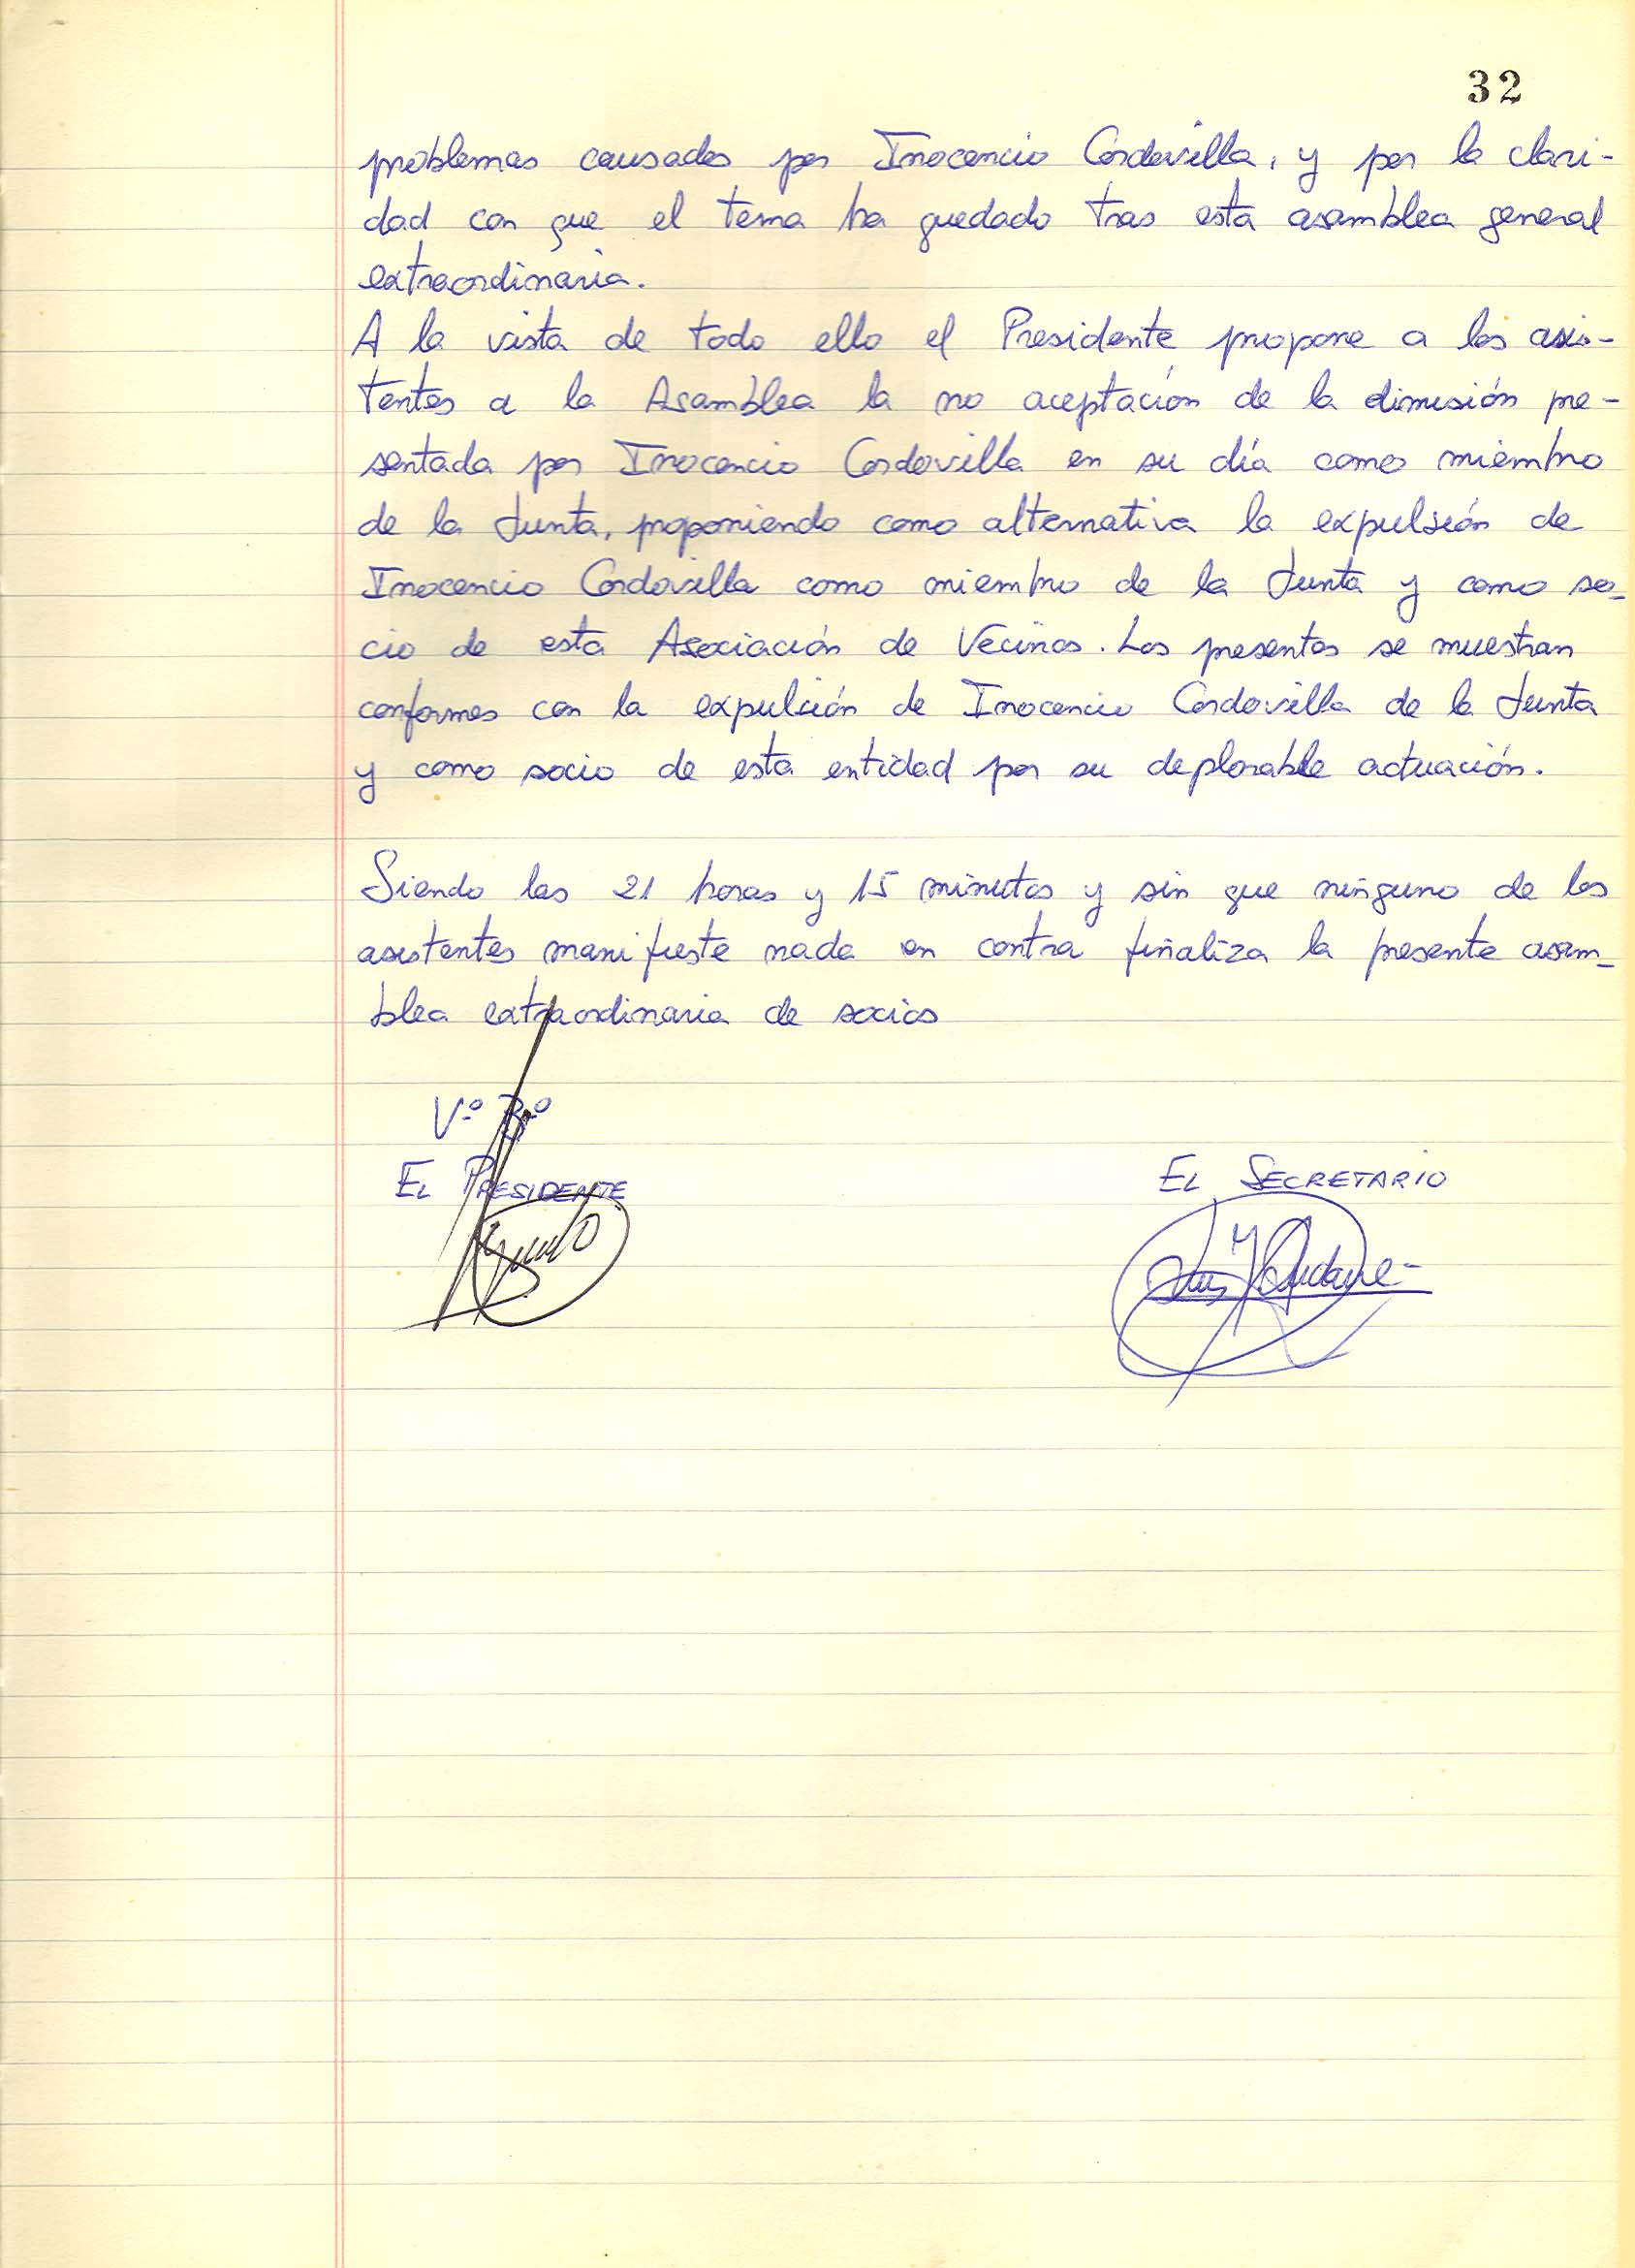 32
problemas causados por Inocencio Cordovilla, y por la clari-
dad con que el tema ha quedado tras esta asamblea general
extraordinaria.
A la vista de todo ello el Presidente propone a los asis-
tentes a la Asamblea la no aceptación de la dimisión pre-
sentada por Inocencio Cordovilla en su día como miembro
de la Junta, proponiendo como alternativa la expulsión de
Inocencio Cordovilla como miembro de la Junta y como so-
cio de esta Asociación de Vecinos. Los presentes se muestran
conformes con la expulción de Inocencio Cordovilla de la Junta
y como socio de esta entidad por su deplorable actuación.
Siendo las 21 horas y 15 minutos y sin que ninguno de los
asistentes manifieste nada en contra finaliza la presente asam-
blea extraordinaria de socios
Vº Bº
EL PRESIDENTE
EL SECRETARIO